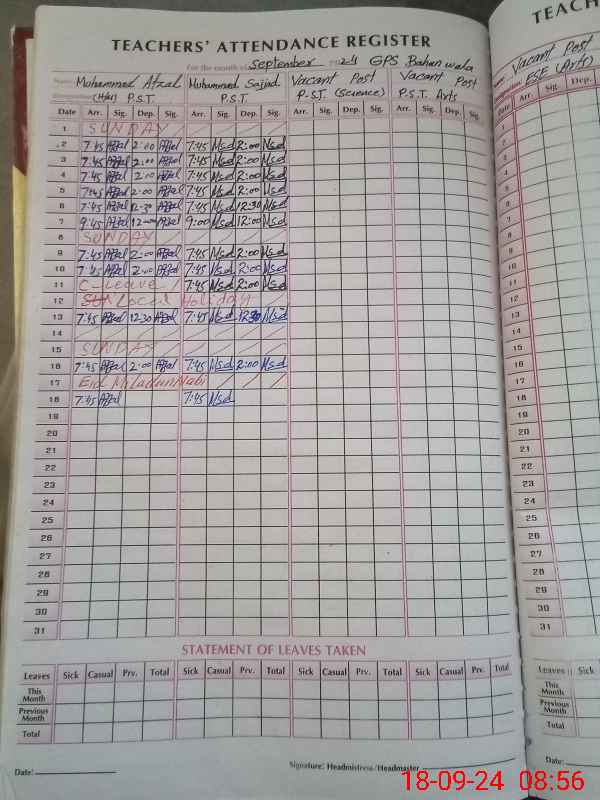 TEACHERS' ATTENDANCE REGISTER
For the month of September 2024 GPS
Name Mohammed Afzal Muhammad Sajjad Vacant Post Vacant Post
(H/M) P.S.T. P.S.T. P.S.T. (Science) P.S.T. Arts
Date Arr. Sig. Dep. Sig. Arr. Sig. Dep. Sig. Arr. Sig. Dep. Sig. Arr. Sig. Dep. Sig.
1 SUNDAY
2 7:45 Afzal 2:00 Afzal 7:45 Msd 2:00 Msd
3 7:45 Afzal 2:00 Afzal 7:45 Msd 2:00 Msd
4 7:45 Afzal 2:00 Afzal 7:45 Msd 2:00 Msd
5 7:45 Afzal 2:00 Afzal 7:45 Msd 2:00 Msd
6 7:45 Afzal 12:30 Afzal 7:45 Msd 12:30 Msd
7 9:45 Afzal 12:00 Afzal 9:00 Msd 12:00 Msd
8 SUNDAY
9 7:45 Afzal 2:00 Afzal 7:45 Msd 2:00 Msd
10 7:45 Afzal 2:00 Afzal 7:45 Msd 2:00 Msd
11 C-Leave 7:45 Msd 2:00 Msd
12 Local Holiday
13 7:45 Afzal 12:30 Afzal 7:45 Msd 12:30 Msd
14
15 SUNDAY
16 7:45 Afzal 2:00 Afzal 7:45 Msd 2:00 Msd
17 Eid MiladunNabi
18 7:45 Afzal 7:45 Msd
19
20
21
22
23
24
25
26
27
28
29
30
31
STATEMENT OF LEAVES TAKEN
Leaves Sick Casual Prv. Total Sick Casual Prv. Total Sick Casual Prv. Total Sick Casual Prv. Total
This Month
Previous Month
Total
Date:
Signature: Headmistress/Headmaster
TEACH
Vacant Post
ESE (Arts)
Date Arr. Sig. Dep.
1
2
3
4
5
6
7
8
9
10
11
12
13
14
15
16
17
18
19
20
21
22
23
24
25
26
27
28
29
30
31
Leaves Sick Casual
This Month
Previous Month
Total
Date:
18-09-24 08:56